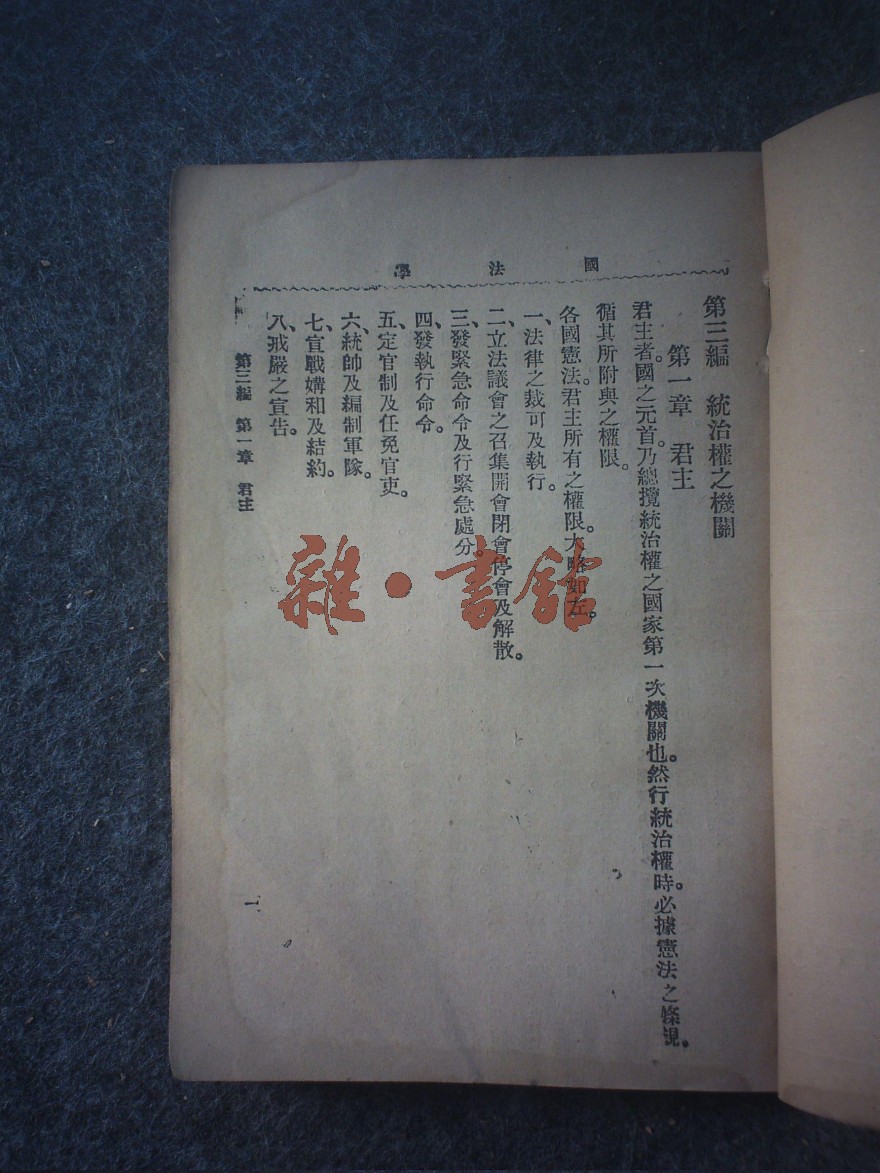 國法學
第三編　統治權之機關
第一章　君主
君主者。國之元首。乃總攬統治權之國家第一次機關也。然行統治權時。必據憲法之條規。
循其所附與之權限。
各國憲法。君主所有之權限。大略如左。
一、法律之裁可及執行。
二、立法議會之召集開會閉會停會及解散。
三、發緊急命令及行緊急處分。
四、發執行命令。
五、定官制及任免官吏。
六、統帥及編制軍隊。
七、宣戰媾和及結約。
八、戒嚴之宣告。
第三編　第一章　君主
一
雜·書館